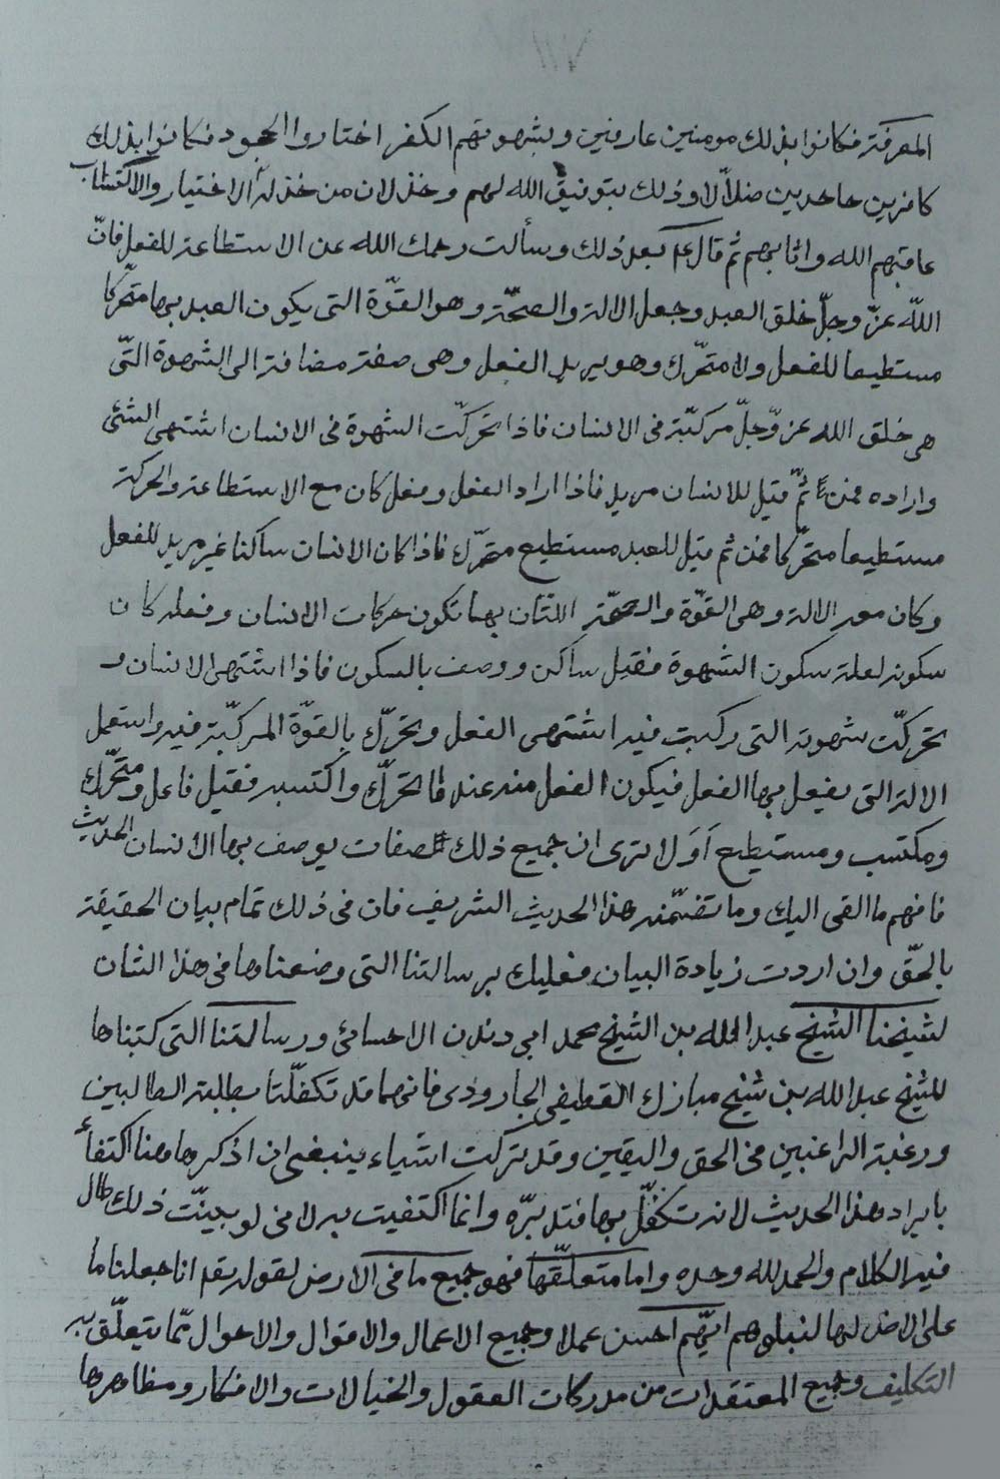 المعرفة فكانوا بذلك مومنين عارفين وبشهوتهم الكفر اختاروا الجحود فكانوا بذلك
كافرين جاحدين ضلالا وذلك بتوفيق الله لهم وخذلان من خذله الله الاختيار والاكتساب
عاقبهم الله واثابهم ثم قال ع بعد ذلك وسألت رحمك الله عن الاستطاعة للفعل فانّ
اللّه عزّ وجلّ خلق العبد وجعل الالة والصحّة وهو القوّة التى يكون العبد بها متحّركا
مستطيعا للفعل ولا متحّرك وهو يريد الفعل وهى صفة مضافة الى الشهوة التّى
هى خلق الله عز وّجلّ مركبّة فى الانسان فاذا تحركّت الشهوة فى الانسان اشتهى الشئ
واراده فمن ثمّ قيل للانسان مريد فاذا اراد الفعل وفعل كان مع الاستطاعة والحركة
مستطيعا متحّركا فمن ثم قيل للعبد مستطيع متحّرك فاذا كان الانسان ساكنا غير مريد للفعل
وكان معه الالة وهى القوّة والصحّة اللتان بهما تكون حركات الانسان وفعله كان
سكونه لعلة سكون الشهوة فقيل ساكن ووصف بالسكون فاذا اشتهى الانسان و
تحركّت شهوته التى ركبت فيه اشتهى الفعل وتحرّك بالقوّة المركبّة فيه واستعمل
الالة التى يفعل بها الفعل فيكون الفعل منه عند ما تحرّك واكتسبه فقيل فاعل ومتحّرك
ومكتسب ومستطيع اَوَلا ترى ان جميع ذلك صفات يوصف بها الانسان الحديث
فافهم ما القى اليك وما تضمّنه هذا الحديث الشريف فان فى ذلك تمام بيان الحقيقة
بالحّق وان اردت زيادة البيان فعليك برسالتنا التى وضعناها فى هذا الشان
لشيخنا الشيخ عبد الله بن الشيخ محمد ابى دندن الاحسائى ورسالتنا التى كتبناها
للشيخ عبد الله بن شيخ مبارك القطيفى الجارودى فانهما قد تكفلّتا بطلبة الطالبين
ورغبة الراغبين فى الحق واليقين وقد تركت اشياء ينبغى ان اذكرها هنا اكتفأ
بايراد هذا الحديث لانه تكفّل بها فتدبّره وانما اكتفيت به لانى لو بينّت ذلك طال
فيه الكلام والحمد لله وحده واما متعلّقها فهو جميع ما فى الارض لقوله تعه انا جعلنا ما
على الارض زينة لها لنبلوهم ايّهم احسن عملا وجميع الاعمال والاقوال والاحوال ممّا يتعلّق به
التكليف وجميع المعتقدات من مدركات العقول والخيالات والافكار ومظاهرها